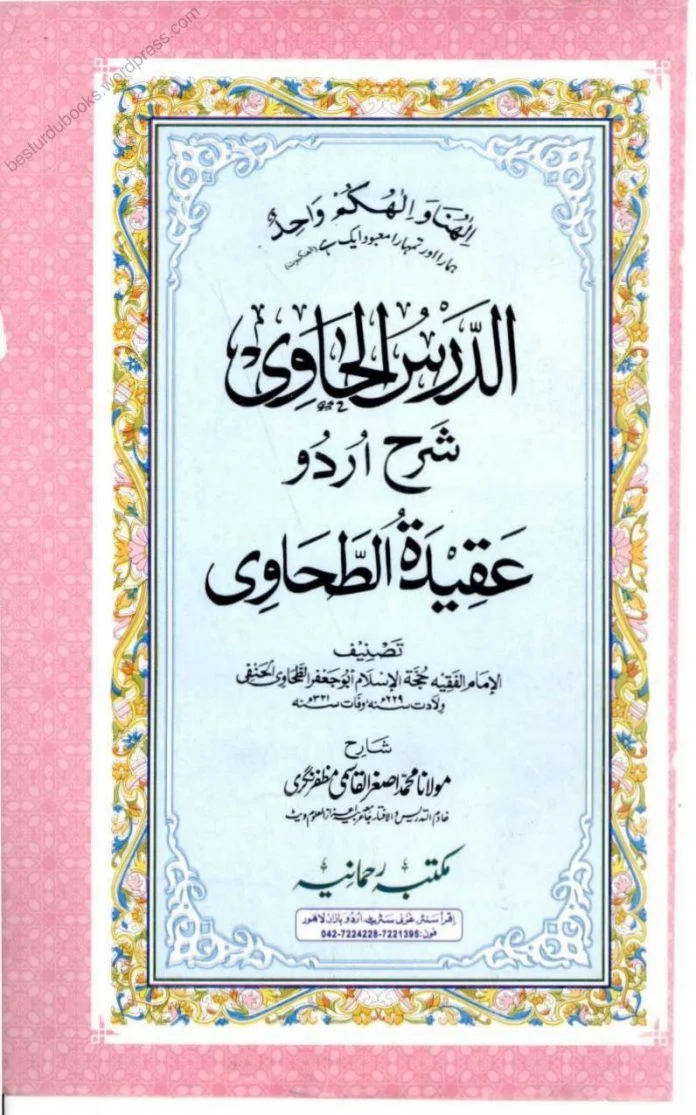 besturdubooks.wordpress.com
اِلٰهُنَا وَ اِلٰهُكُمْ وَاحِدٌ
ہمارا اور تمہارا معبود ایک ہے (العنکبوت)
الدَّرْسُ الْحَاوِی
شَرح اُردُو
عَقِیْدَۃُ الطَّحَاوِی
تَصْنِیْف
الإمام الفقیہ حُجّة الإسلام أبو جعفر الطّحاوی الحنفی
ولادت سنہ ۲۲۹ھ وفات سنہ ۳۲۱ھ
شَارِح
مولانا محمّد اصغر القاسمی مظفر نگری
خادم التدریس والافتاء جامعہ عربیہ اعزاز العلوم ویٹ
مکتبہ رحمانیہ
اِقرأ سَنٹر غَزنی سَٹریٹ اُردُو بازار لاھور
فون: 042-7224228-7221395